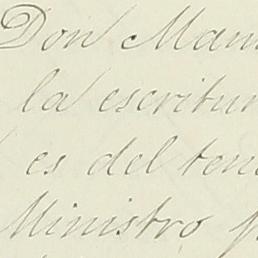 Don Man
la escritur
es del ten
Ministro p